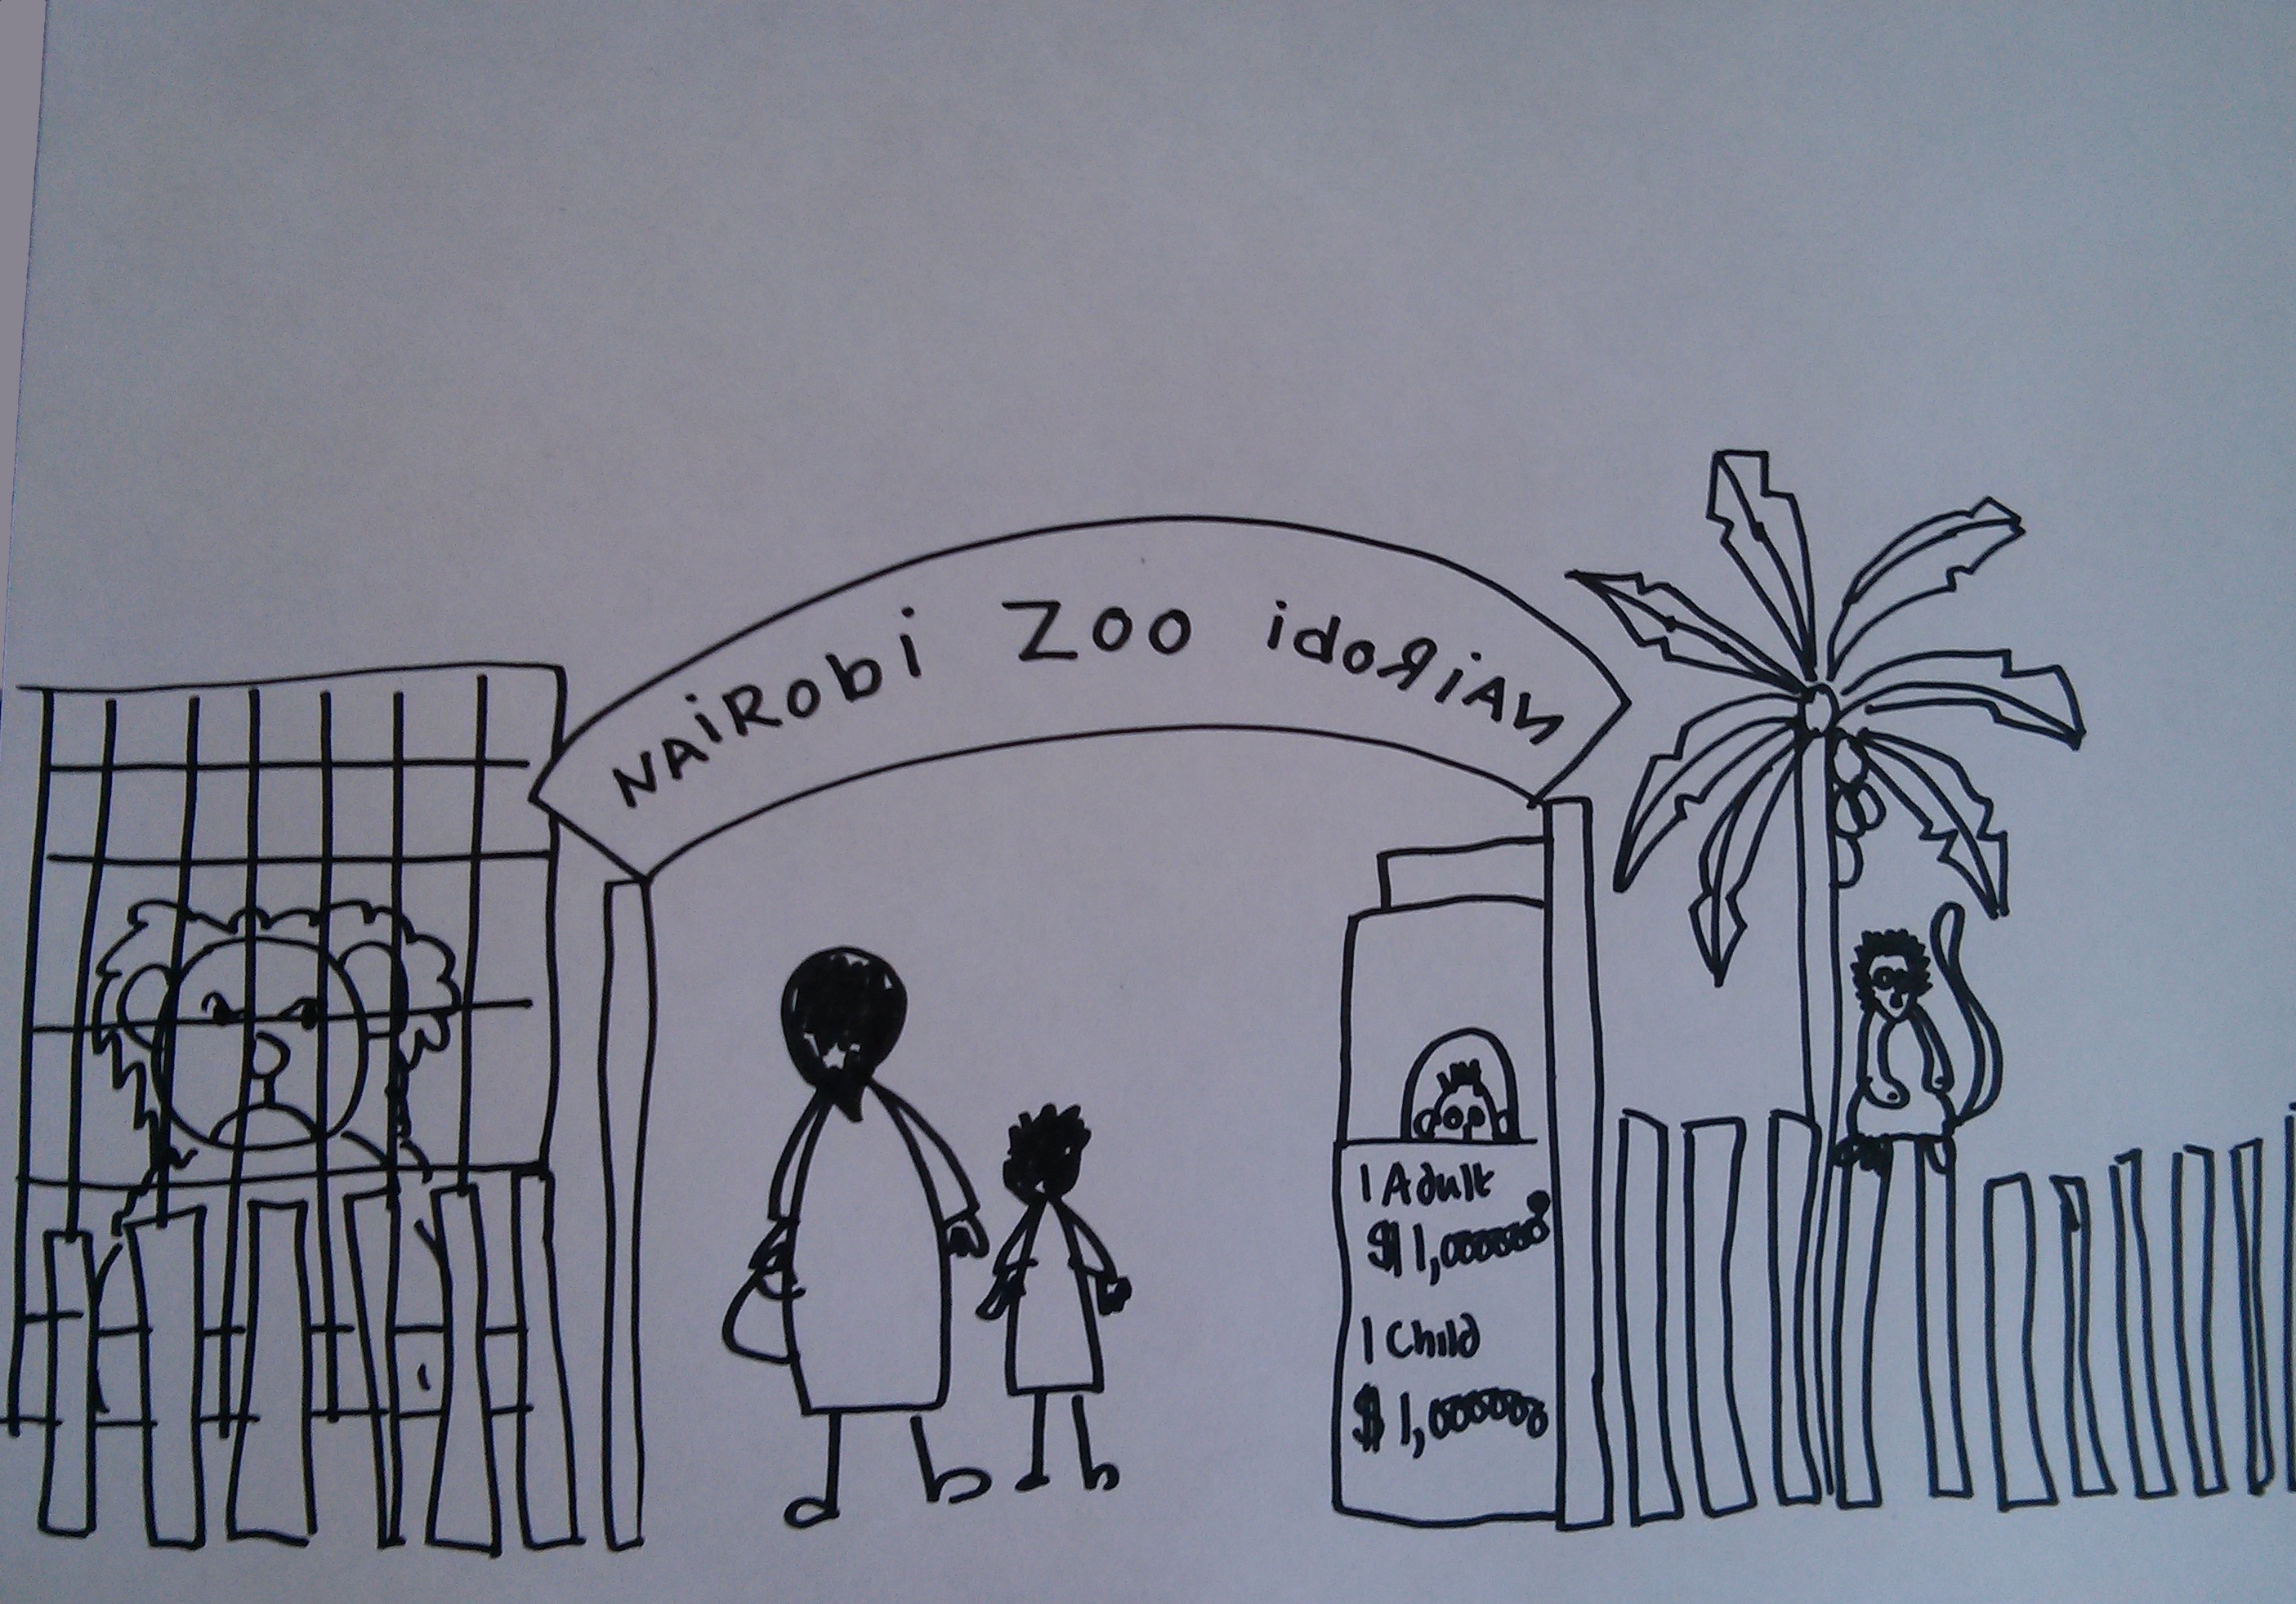 NAiRobi ZOO idoЯiAN
1 Adult
$ 1,000000
1 Child
$ 1,000000